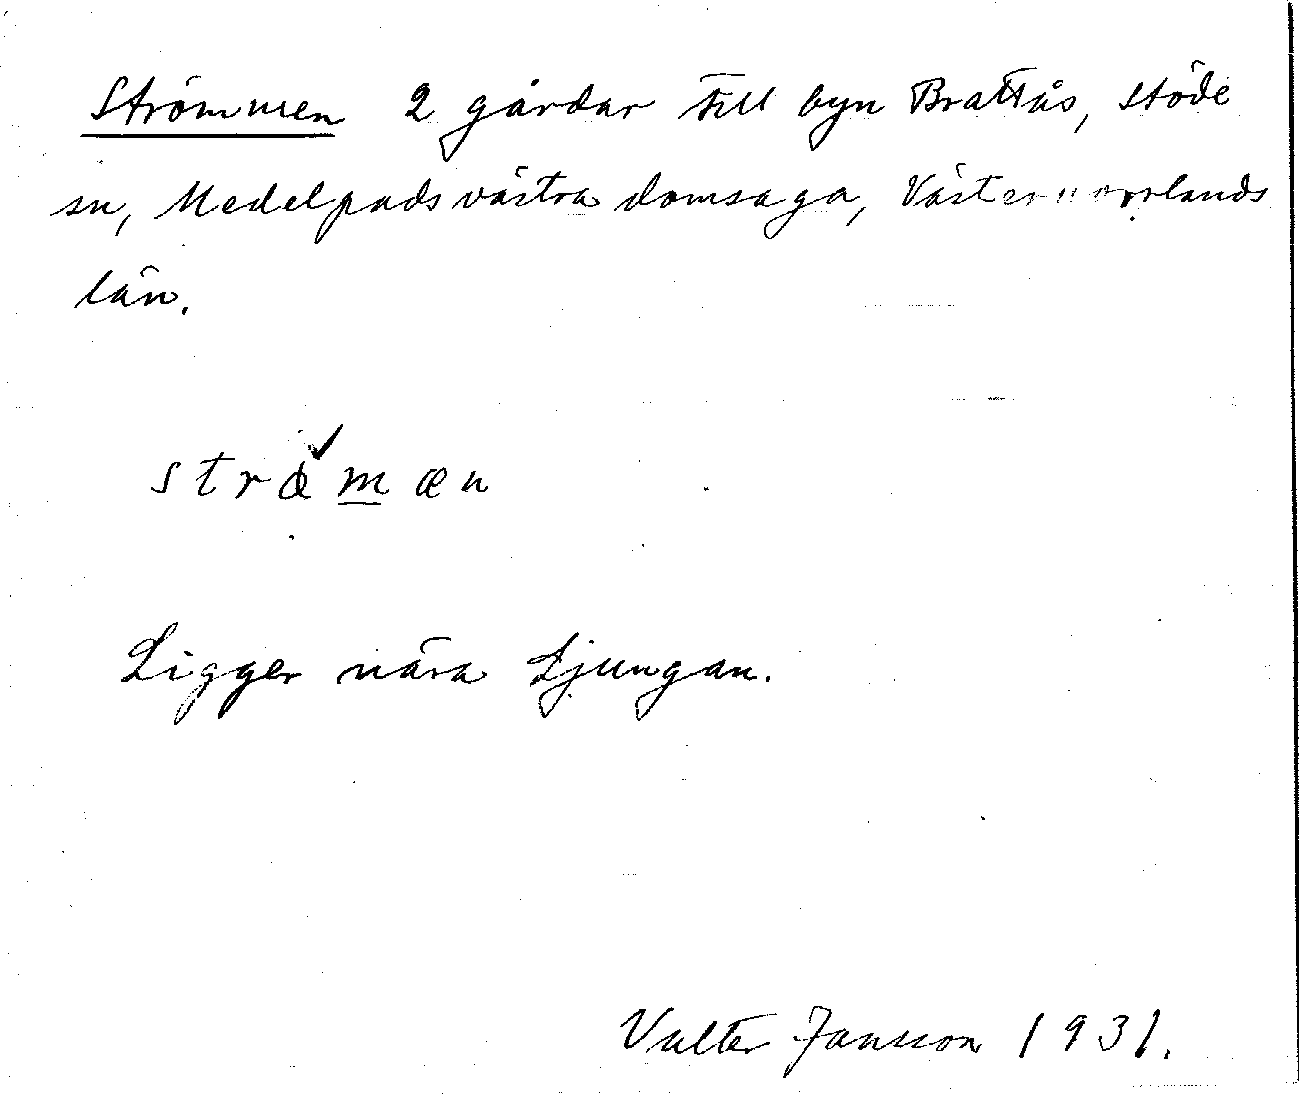 Strömmen 2 gårdar till byn Brattås, Stöde
sn, Medelpads västra domsaga, Västernorrlands
län.
strö̌m̲æn
Ligger nära Ljungan.
Valter Jansson 1931.